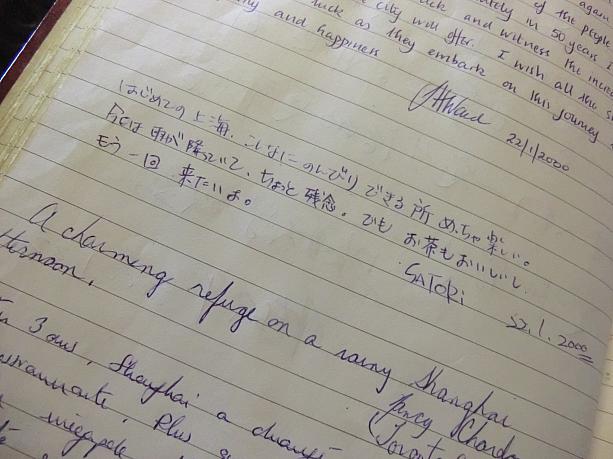 again
of the people
in 50 years I
luck and witness the
the city will offer. I wish all the
luck as they embark on this journey
and happiness
22/1/2000
はじめての上海、こんなにのんびりできる所めっちゃ楽しい。
外は雨が降っていて、ちょっと残念。でもお茶もおいしいし、
もう一回来たいよ。
SATORI
22.1.2000
A charming refuge on a rainy Shanghai
afternoon.
3 ans, Shanghai a changé
Plus
mégapole